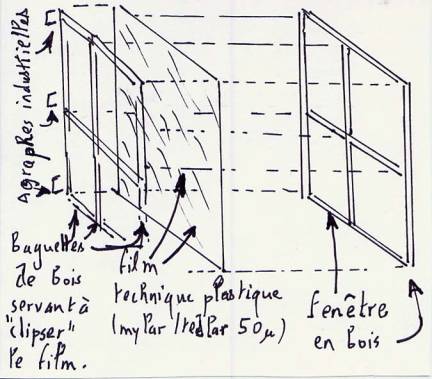 Agraphes industrielles
Baguettes
de bois
servant à
"clipser"
le film.
film
technique plastique
(mylar/tedlar 50µ)
fenêtre
en bois